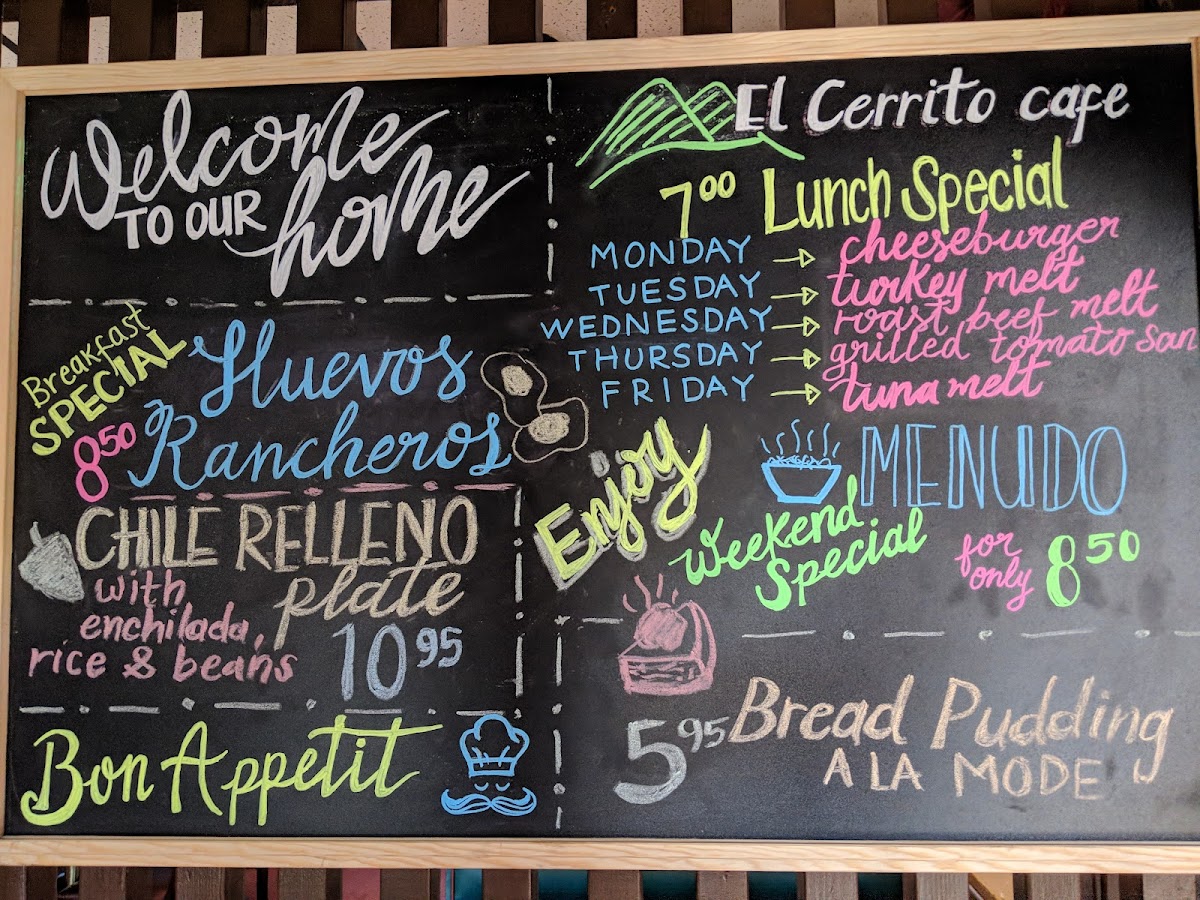 Welcome
TO OUR home
Breakfast
SPECIAL
8⁵⁰
Huevos
Rancheros
CHILE RELLENO
plate
with
enchilada,
rice & beans
10⁹⁵
Bon Appetit
El Cerrito cafe
7⁰⁰ Lunch Special
MONDAY → cheeseburger
TUESDAY → turkey melt
WEDNESDAY → roast beef melt
THURSDAY → grilled tomato san
FRIDAY → tuna melt
Enjoy
MENUDO
Weekend
Special
for
only
8⁵⁰
5⁹⁵ Bread Pudding
A LA MODE